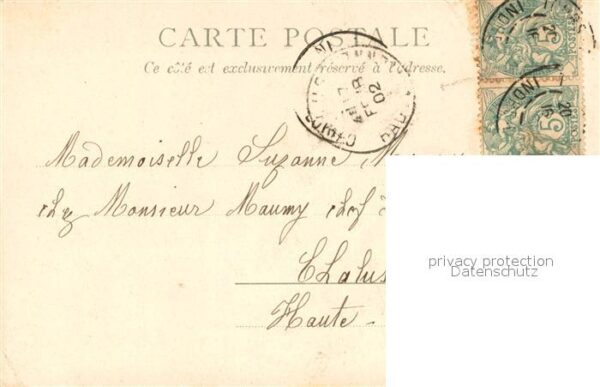 CARTE POSTALE
Ce côté est exclusivement réservé à l'adresse.
5
5
02
Mademoiselle Suzanne
chez Monsieur Maumy chef
Chalus
Haute-
privacy protection
Datenschutz